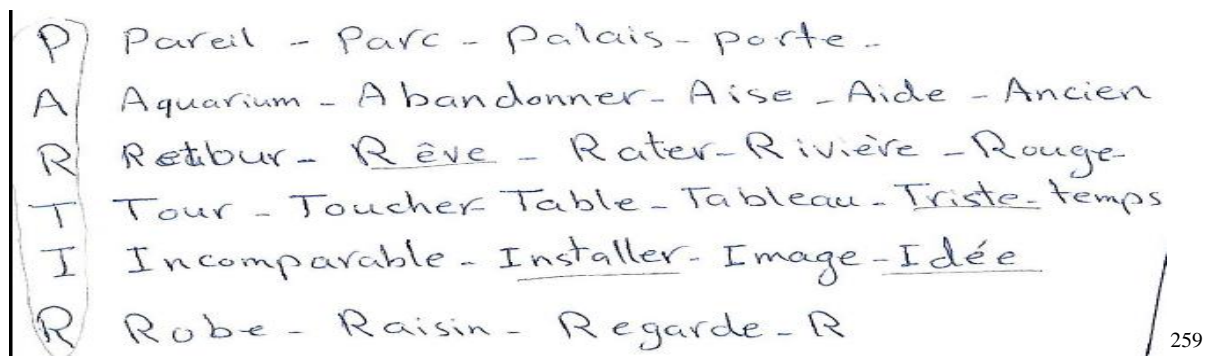 P Pareil - Parc - Palais - porte -
A Aquarium - Abandonner - Aise - Aide - Ancien
R Retour - Rêve - Rater - Rivière - Rouge -
T Tour - Toucher - Table - Tableau - Triste - temps
I Incomparable - Installer - Image - Idée
R Robe - Raisin - Regarde - R
259